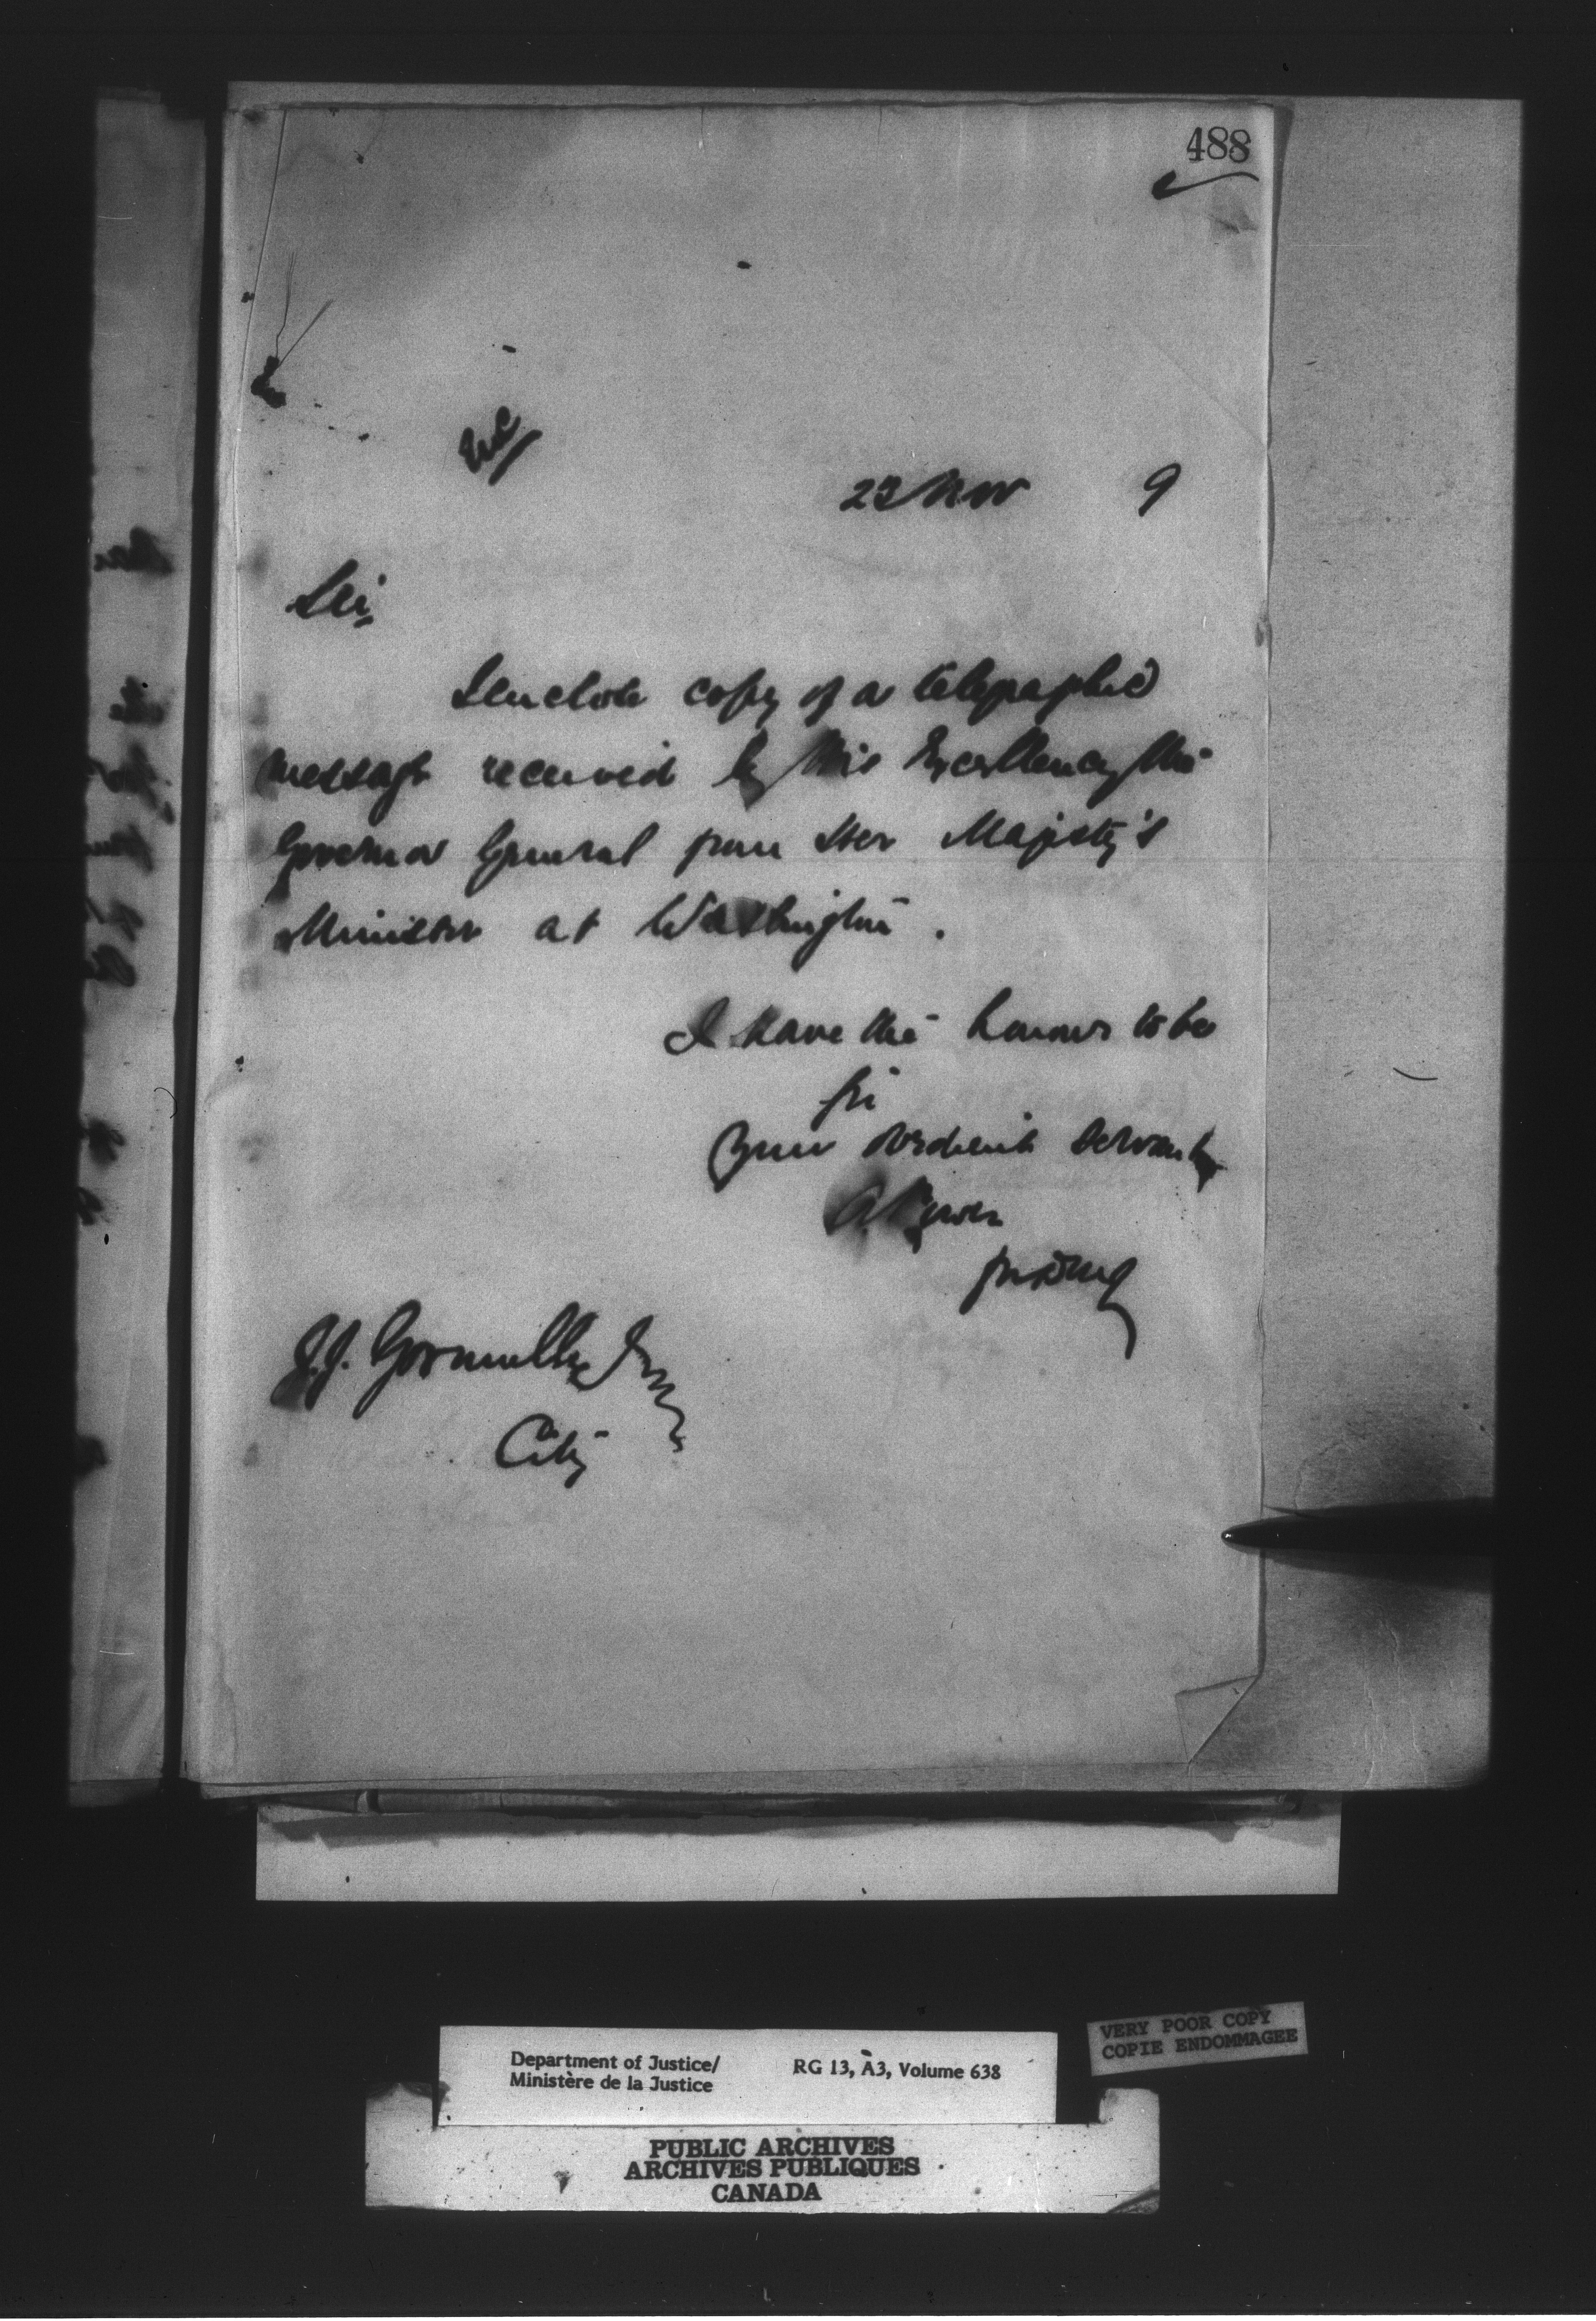 488
Encl
23 Nov 9
Sir,
I enclose copy of a telegraphic
message received by His Excellency the
Governor General from Her Majesty's
Minister at Washington.
I have the honour to be
Sir
Your obedient servant
A. Power
for DMJ
J.J. Gormully Esq
City
VERY POOR COPY
COPIE ENDOMMAGEE
Department of Justice/ RG 13, A3, Volume 638
Ministère de la Justice
PUBLIC ARCHIVES
ARCHIVES PUBLIQUES
CANADA